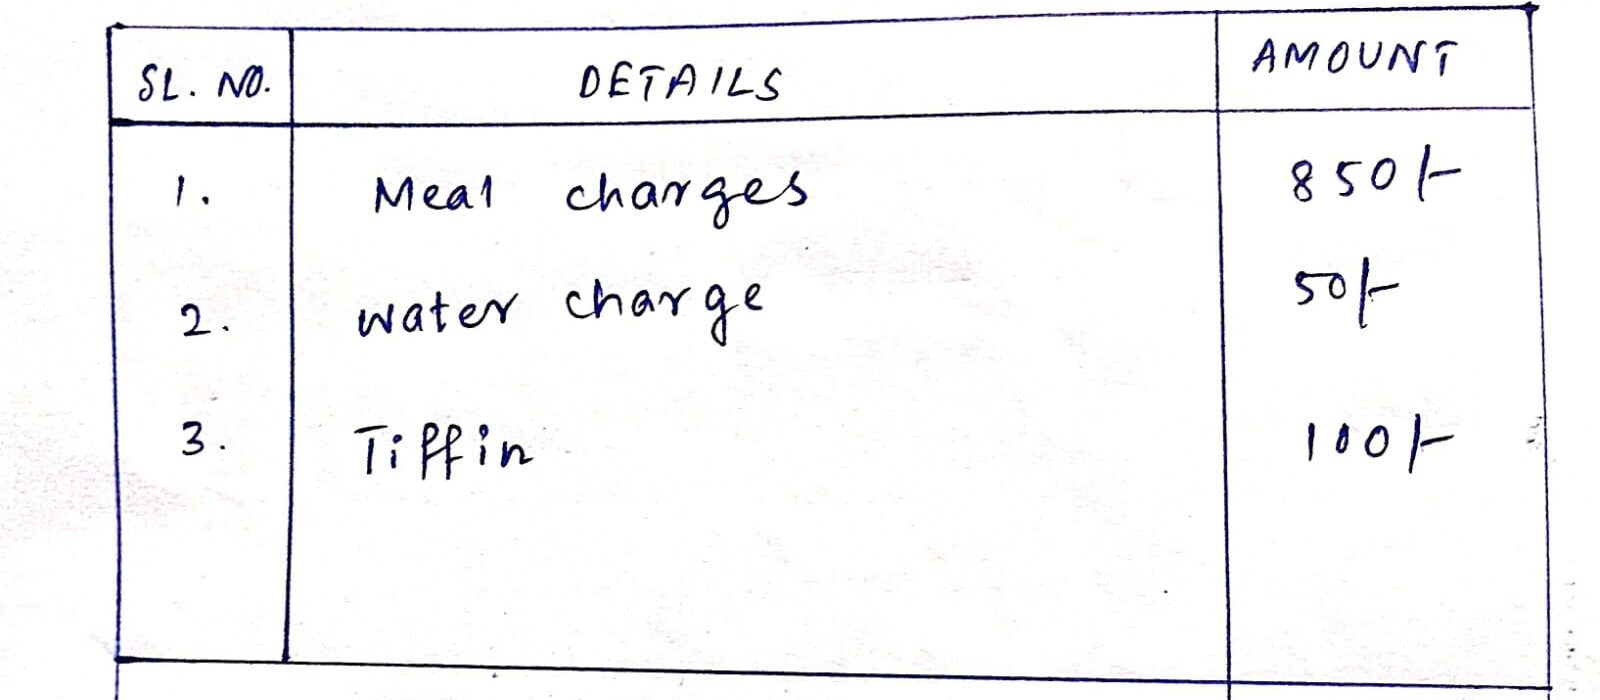 SL. NO. DETAILS AMOUNT
1. Meal charges 850/-
2. water charge 50/-
3. Tiffin 100/-